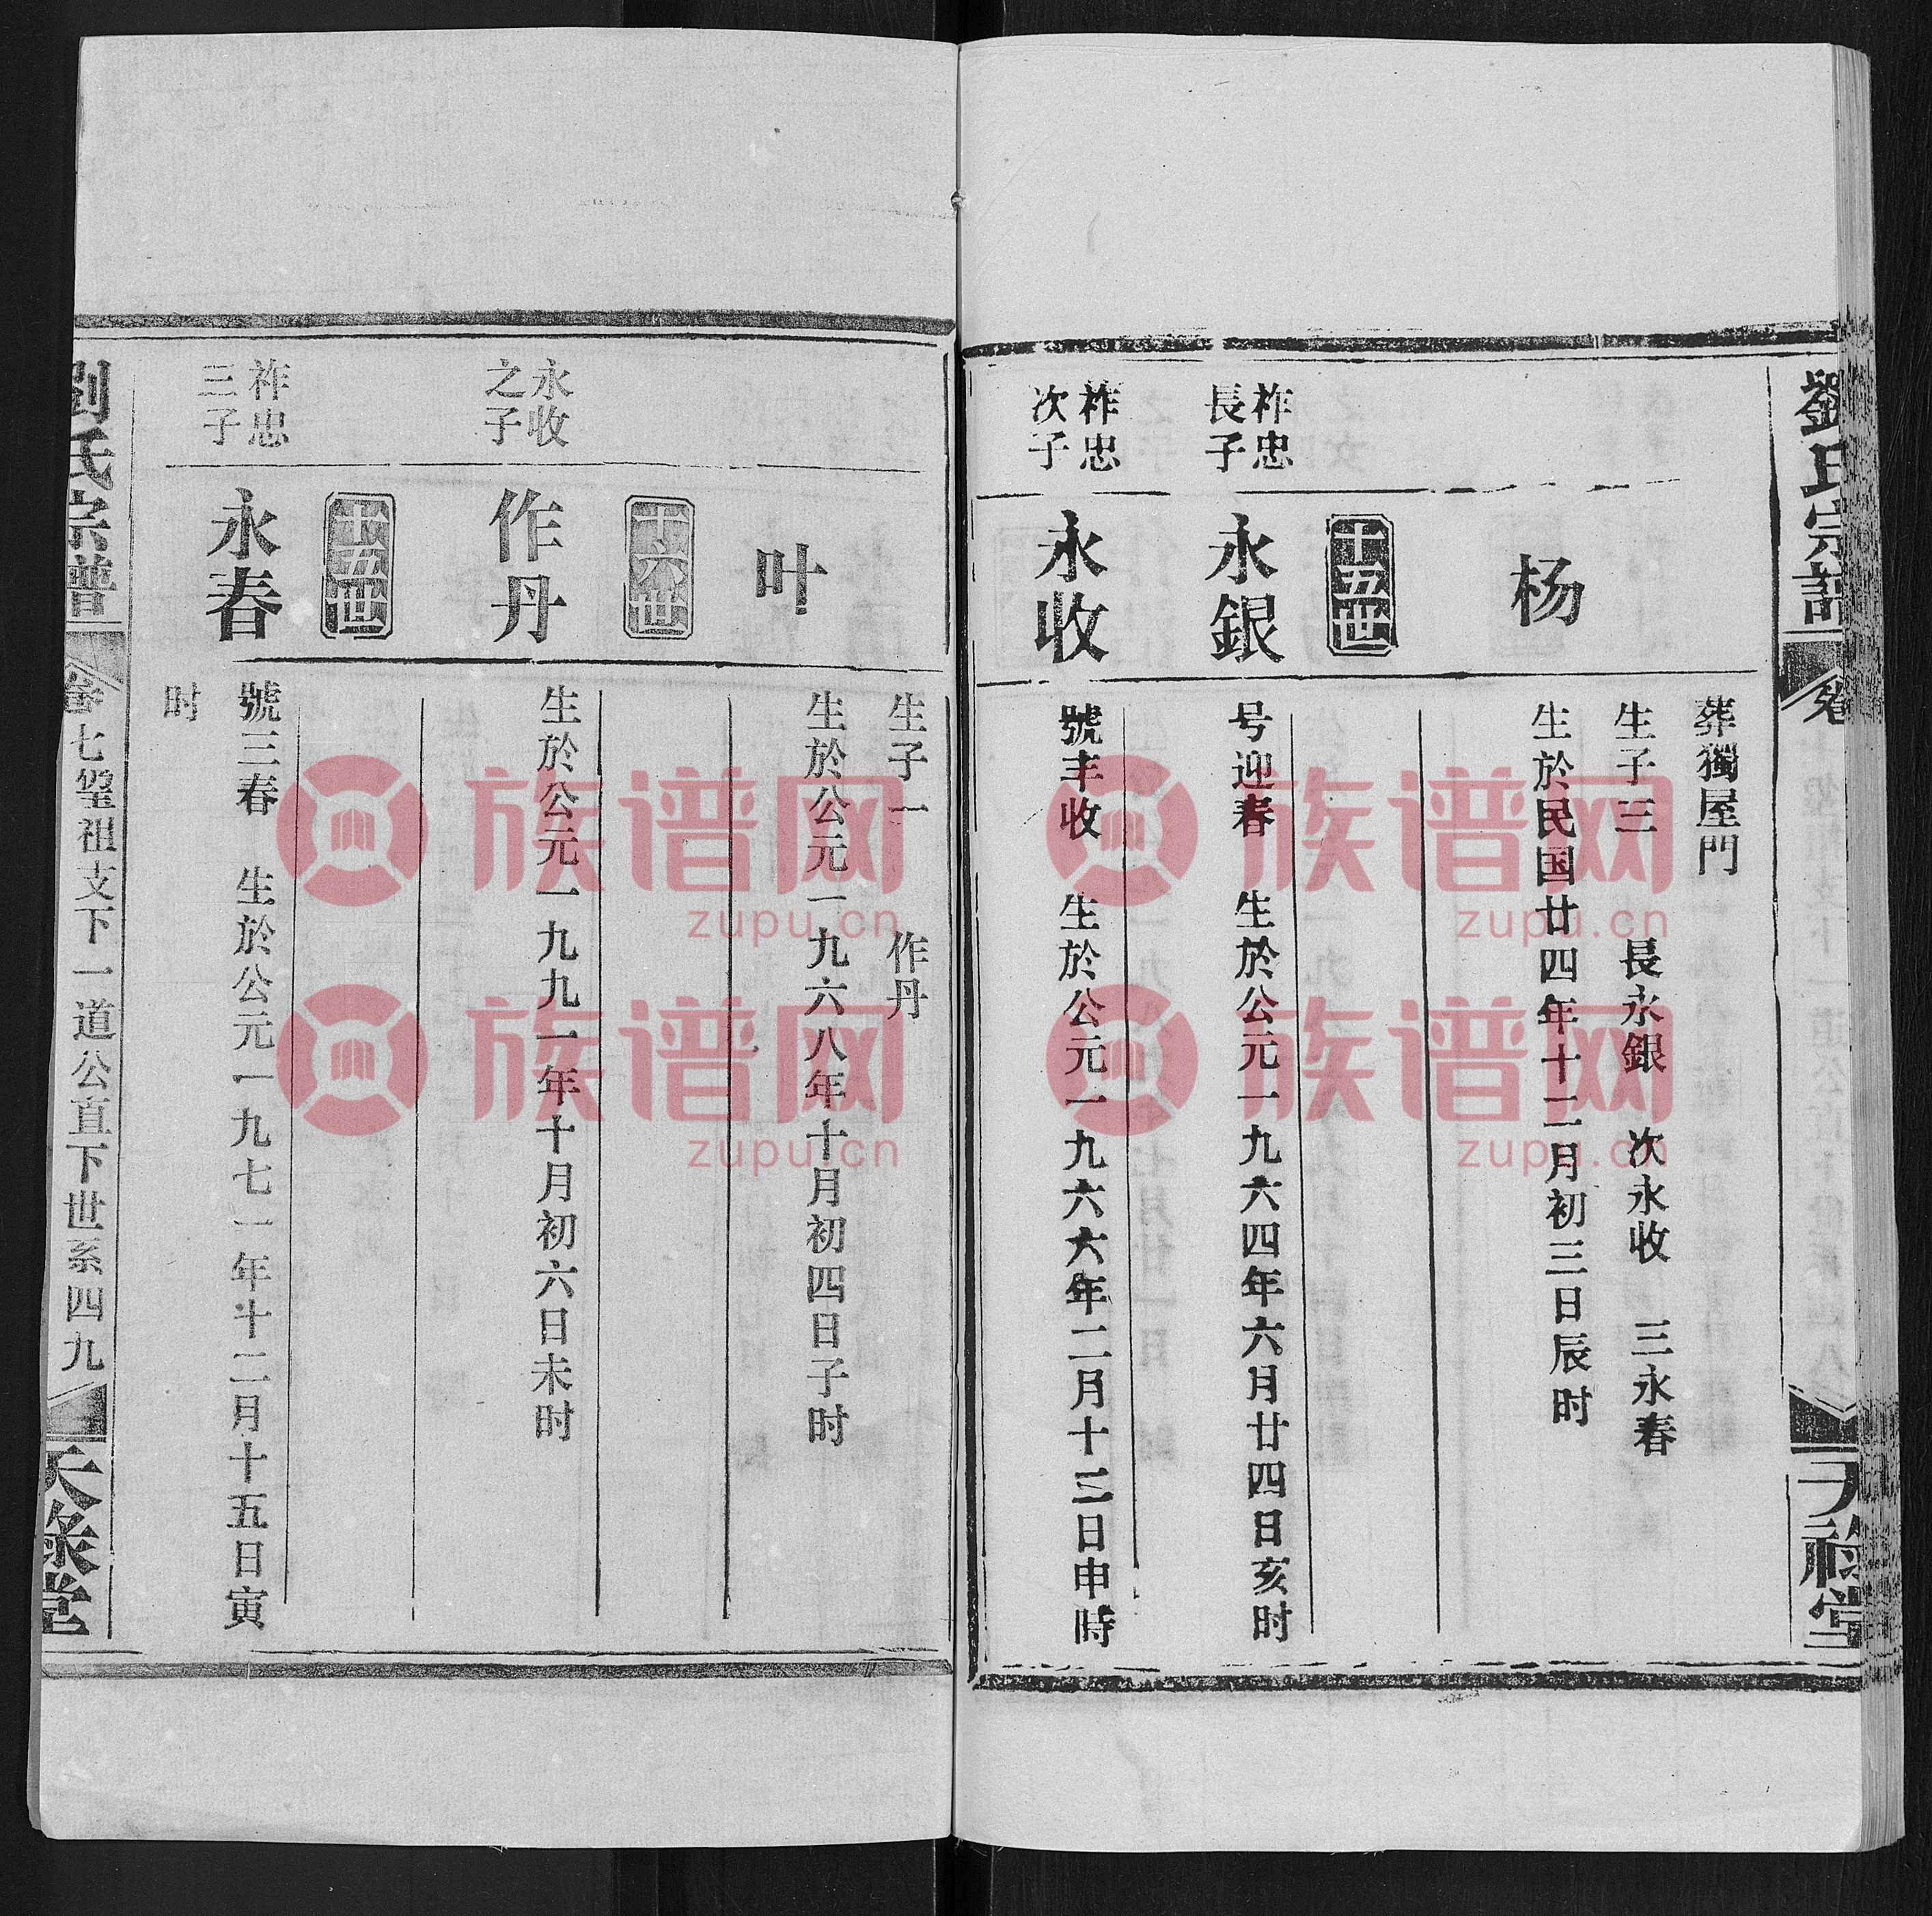 劉氏宗譜
卷
天祿堂
葬獨屋門
杨
生子三 長永銀 次永收 三永春
生於民国廿四年十二月初三日辰时
十五世
祚忠
長子
永銀
号迎春 生於公元一九六四年六月廿四日亥时
祚忠
次子
永收
號丰收 生於公元一九六六年二月十三日申時
生子一 作丹
叶
生於公元一九六八年十月初四日子时
十六世
永收
之子
作丹
生於公元一九九一年十月初六日未时
十五世
祚忠
三子
永春
號三春 生於公元一九七一年十二月十五日寅
时
劉氏宗譜
卷七 祖支下一道公直下世系四九
天祿堂
族谱网
zupu.cn
族谱网
zupu.cn
族谱网
zupu.cn
族谱网
zupu.cn